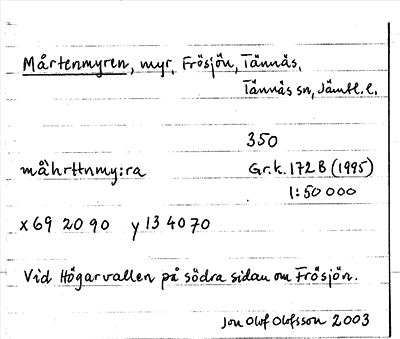 Mårtenmyren, myr, Frösjön, Tännäs,
Tännäs sn, Jämtl. l.
350
må`hrttnmy:ra Gr.k. 172 B (1995)
1:50 000
x 69 20 90 y 13 40 70
Vid Högarvallen på södra sidan om Frösjön.
Jon Olof Olofsson 2003